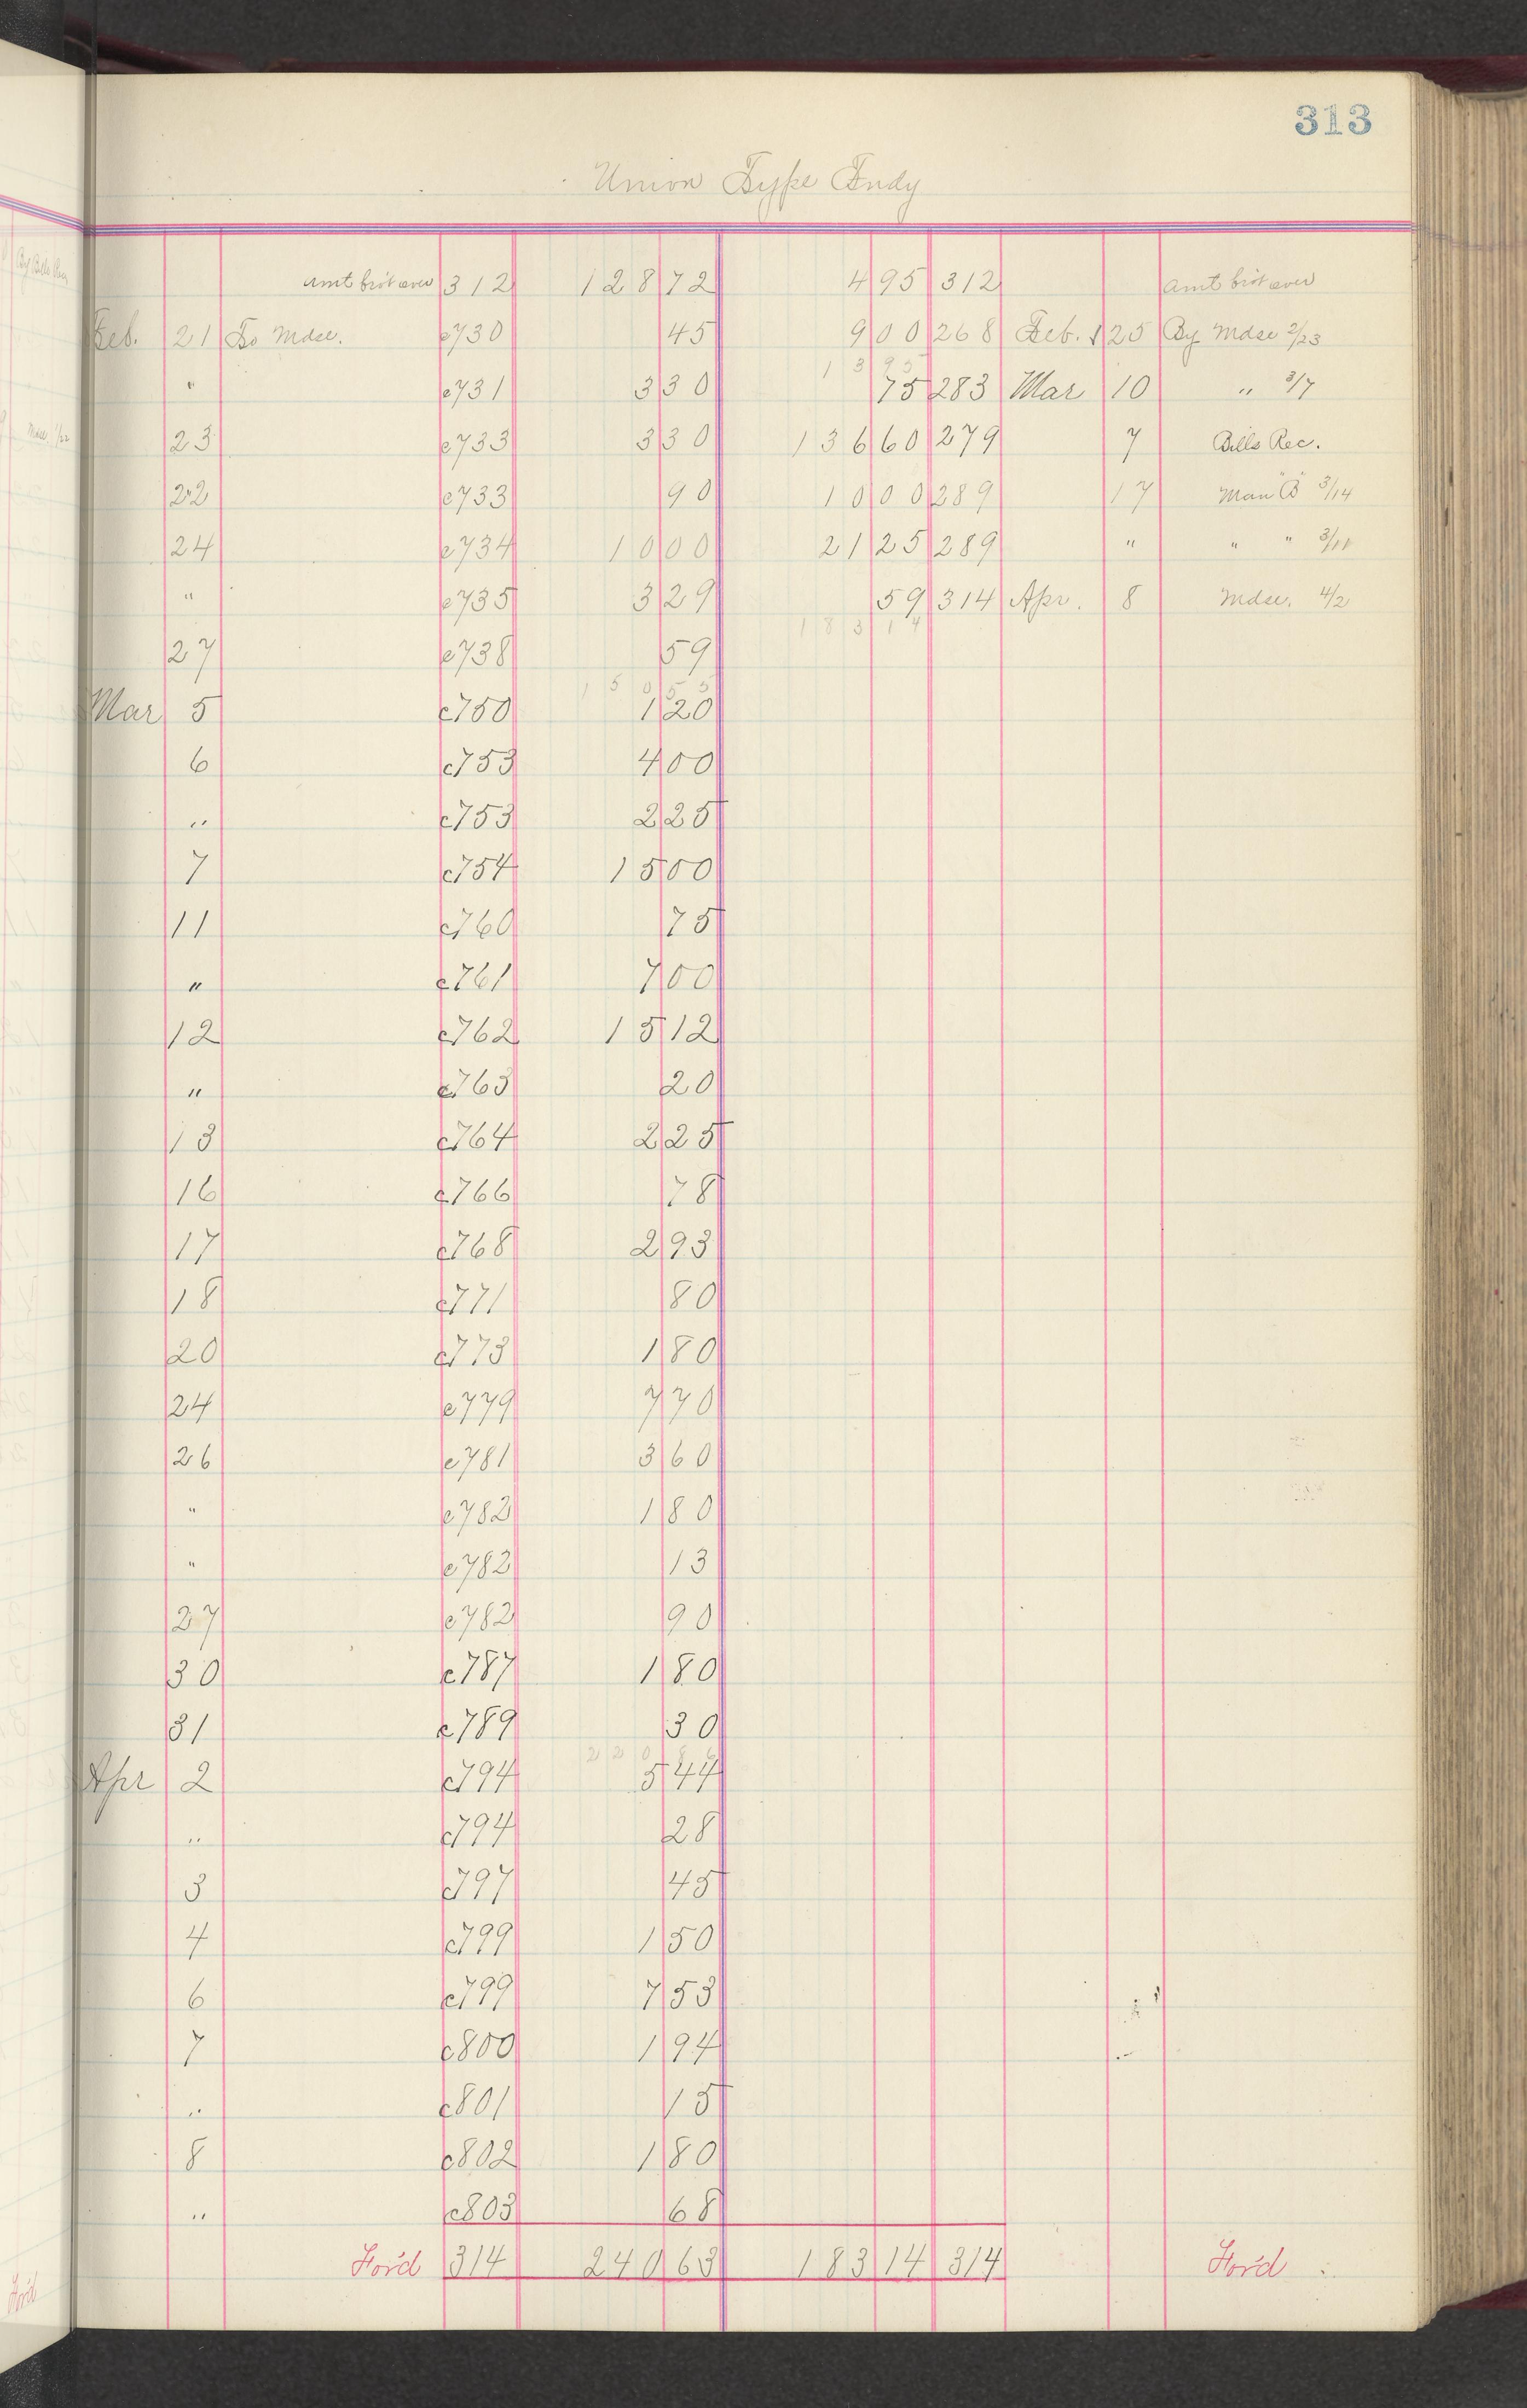 313
Union Type Fndy
amt bro't over 312 128 72 4 95 312 amt bro't over
Feb. 21 To Mdse. c730 45 9 00 268 Feb. 25 By Mdse 2/23
" c731 3 30 13 95 75 283 Mar 10 " 3/7
23 c733 3 30 136 60 279 7 Bills Rec.
22 c733 90 10 00 289 17 Man "B" 3/14
24 c734 10 00 21 25 289 " " " 3/11
" c735 3 29 59 314 Apr. 8 Mdse. 4/2
183 14
27 c738 59
150 55
Mar 5 c750 1 20
6 c753 4 00
" c753 2 25
7 c754 15 00
11 c760 75
" c761 7 00
12 c762 15 12
" c763 20
13 c764 2 25
16 c766 78
17 c768 2 93
18 c771 80
20 c773 1 80
24 c779 7 70
26 c781 3 60
" c782 1 80
" c782 13
27 c782 90
30 c787 1 80
31 c789 30
220 86
Apr 2 c794 5 44
" c794 28
3 c797 45
4 c799 1 50
6 c799 7 53
7 c800 1 94
" c801 15
8 c802 1 80
" c803 68
For'd 314 240 63 183 14 314 For'd